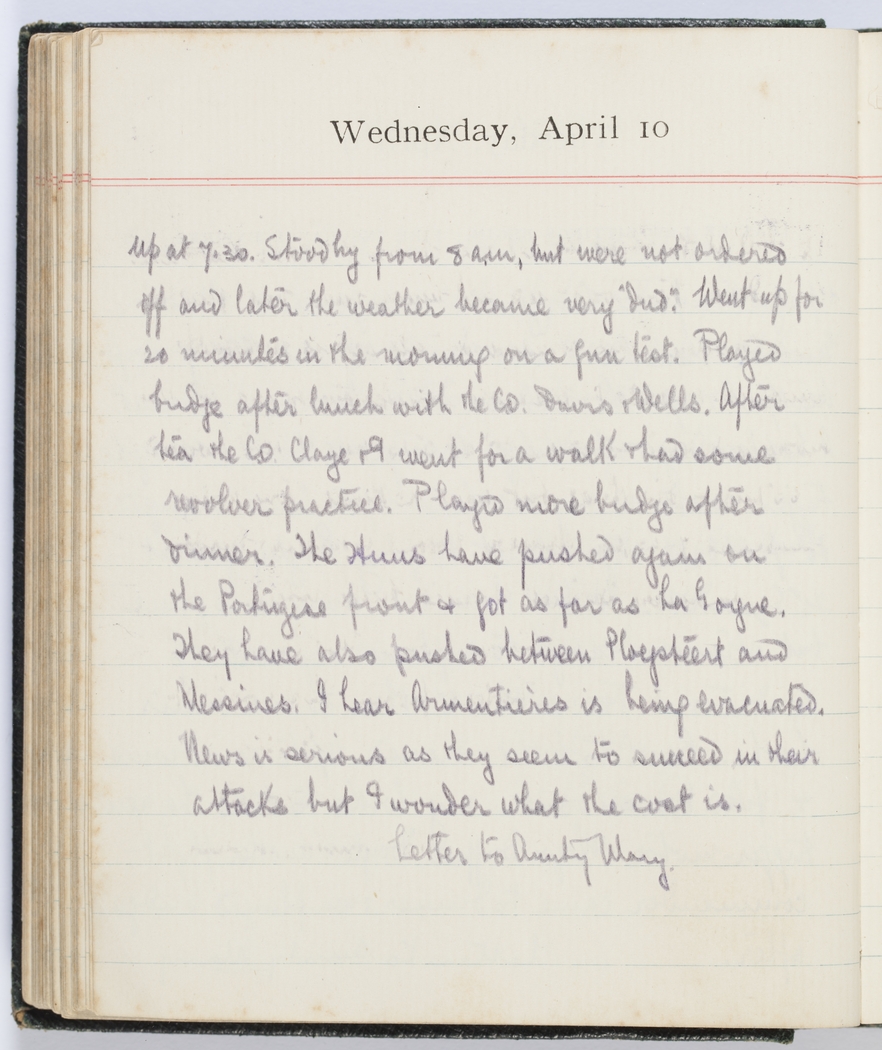 Wednesday, April 10
Up at 7.30. Stood by from 8 a.m, but were not ordered
off and later the weather became very "dud". Went up for
20 minutes in the morning on a gun test. Played
bridge after lunch with the C.O. Davis & Wells. After
tea the C.O. Claye & I went for a walk & had some
revolver practice. Played more bridge after
dinner. The Huns have pushed again on
the Portugese front & got as far as La Gorgue.
They have also pushed between Ploegsteert and
Messines. I hear Armentières is being evacuated.
News is serious as they seem to succeed in their
attacks but I wonder what the cost is.
Letter to Aunty Mary.